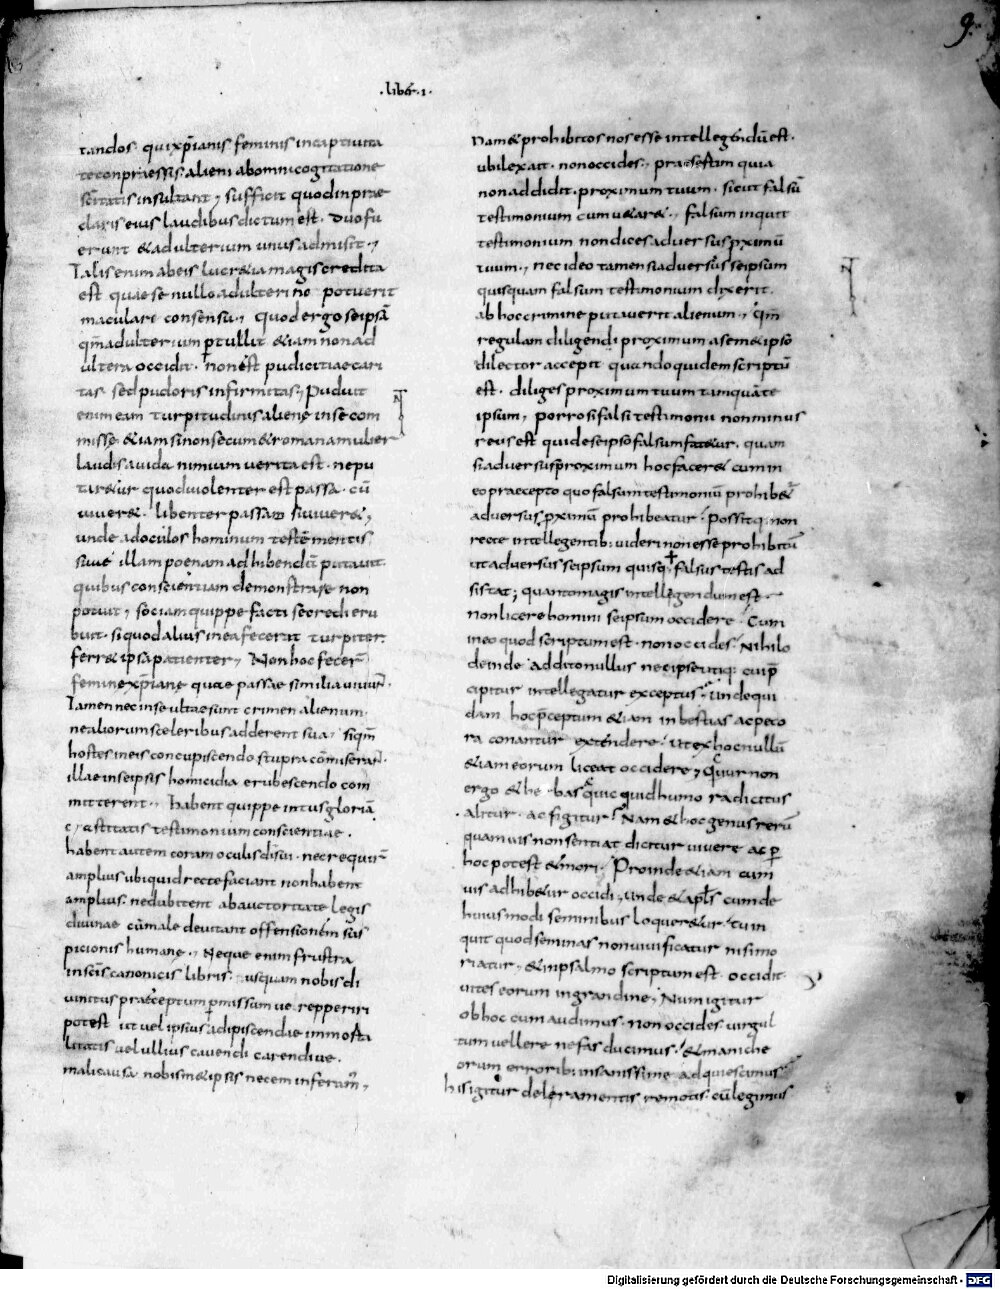 9.
·liber·i·
tandos· qui xp̄ianis feminis incaptivita
te conpraessis alieni ab omni cogitatione
sc̄itatis insultant; sufficit quod in prae
claris eius laudibus dictum est. Duo fu
erunt & adulterium unus admisit;
Talis enim ab eis lucr&ia magis credita
est quae se nullo adulterino potuerit
maculari consensu; quod ergo se ipsā
qm̄ adulterium ꝑtullit &iam non ad
ultera occidit· non est pudicitiae cari
tas· sed pudoris infirmitas; Puduit
enim eam turpitudinis alienę in se com
missę &iam si non secum & romana mulier
laudis avida nimium verita est· ne pu
tar&ur quod violenter est passa· cū
viver&· libenter passa si viver&;
unde ad oculos hominum testē mentis
suae illam poenam adhibendā putavit·
quibus conscientiam demonstrare non
potuit; sociam quippe facti se credi eru
buit· si quod alius in ea fecerit turpiter·
ferr& ipsa patienter; Non hoc fecer̄
feminę xp̄ianę quae passae similia vivun̄t·
Tamen nec in se ultae sunt crimen alienum·
ne aliorum sceleribus adderent sua· si qm̄
hostes in eis concupiscendo stupra cōmiseran̄t·
illae in se ipsis homicidia erubescendo com
mitterent; habent quippe intus gloriā
castitatis testimonium conscientiae·
habent autem coram oculis dī sui· nec requir̄
amplius ubi quid recte faciant non habent
amplius· ne dubitent ab auctoritate legis
divinae cū male devitant offensionem sus
picionis humanę; Neque enim frustra
in scīs canonicis libris· usquam nobis di
vinitus praeceptum ꝑmissum ve repperiri
potest ut vel ipsius adipiscendae immorta
litatis vel ullius cavendi carendi ve·
mali causa nobism&ipsis necem inferam̄;
Nam & prohibitos nos esse intellegendū est·
ubi lex ait· non occides; praesertim quia
non addidit· proximum tuum· sicut falsū
testimonium cum v&ar&; falsum inquit
testimonium non dices adversus ꝓximū
tuum; nec ideo tamen si adversus se ipsum
quisquam falsum testimonium dixerit·
ab hoc crimine putaverit alienum; qm̄
regulam diligendi proximum a sem&ipso
dilector accepit quandoquidem scriptū
est· diliges proximum tuum tamquā te
ipsum; porro si falsi testimonii non minus
reus est qui de se ipso falsum fat&ur, quam
si adversus proximum hoc facer& cum in
eo praecepto quo falsum testimoniū prohib&r̄
adversus ꝓximū prohibeatur· possitq; non
recte intellegentib; videri non esse prohibitū
ut adversus se ipsum quisq; falsus testis ad
sistat; quanto magis intellegendum est·
non licere homini se ipsum occidere· Cum
in eo quod scriptum est· non occides· Nihilo
deinde addito nullus nec ipse utiq; cui p̄
cipitur intellegatur exceptus· unde qui
dam hoc p̄ceptum &iam in bestias ac peco
ra conantur extendere· ut ex hoc nullū
&iam eorum liceat occidere; cur non
ergo & herbas & quicquid humo radicitus
alitur· ac figitur· Nam & hoc genus rerū
quamvis non sentiat dicitur vivere ac ꝑ
hoc potest & mori· Proinde &iam cum
vis adhib&ur occidi; unde & apl̄s cum de
huius modi seminibus loquer&ur· tu in
quit quod seminas non vivificatur nisi mo
riatur; & in psalmo scriptum est· occidit
vites eorum in grandine; Num igitur
ob hoc cum audimus· non occides· virgul
tum vellere nefas ducimus· & maniche
orum errori insanissime adquiescimus·
his igitur deleramentis remotis· cū legimus
Digitalisierung gefördert durch die Deutsche Forschungsgemeinschaft - DFG